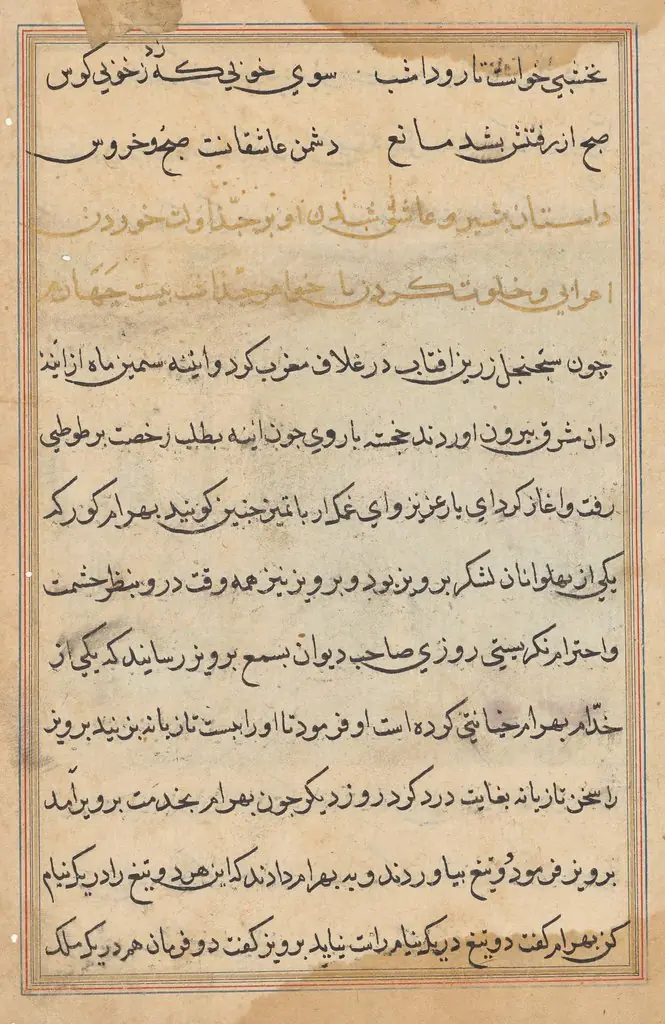 نخشبی خواست تا رود امشب سوی خوبی که زد ز خوبی کوس
صبح از رفتنش بشد مانع دشمن عاشقانت صبح و خروس
داستان بشیر و عاشق شدن او بر چندا و لت خوردن
اعرابی و خلوت کردن با خواهر چندا شب بیست چهارم
چون سجنجل زرین افتاب در غلاف مغرب کرد و اینه سمین ماه از اینه
دان مشرق بیرون اوردند خجسته با روی چون اینه بطلب رخصت بر طوطی
رفت و اغاز کرد ای یار عزیز و ای غمکسار با تمیز چنین کویند بهرام کور که
یکی از پهلوانان لشکر برویز بود و برویز نیز همه وقت درو بنظر حشمت
و احترام نکریستی روزی صاحب دیوان بسمع برویز رسایند که یکی از
خدّام بهرام خیانتی کرده است او فرمود تا اورا بیست تازبانه بزنید برویز
را سخن تازبانه بغایت درد کرد روز دیکر چون بهرام بخدمت برویز آمد
برویز فرمود دو تیغ بیاوردند و به بهرام دادند که این هر دو تیغ را در یک نیام
کن بهرام کفت دو تیغ در یک نیام راست نیاید برویز کفت دو فرمان هم در یک ملک